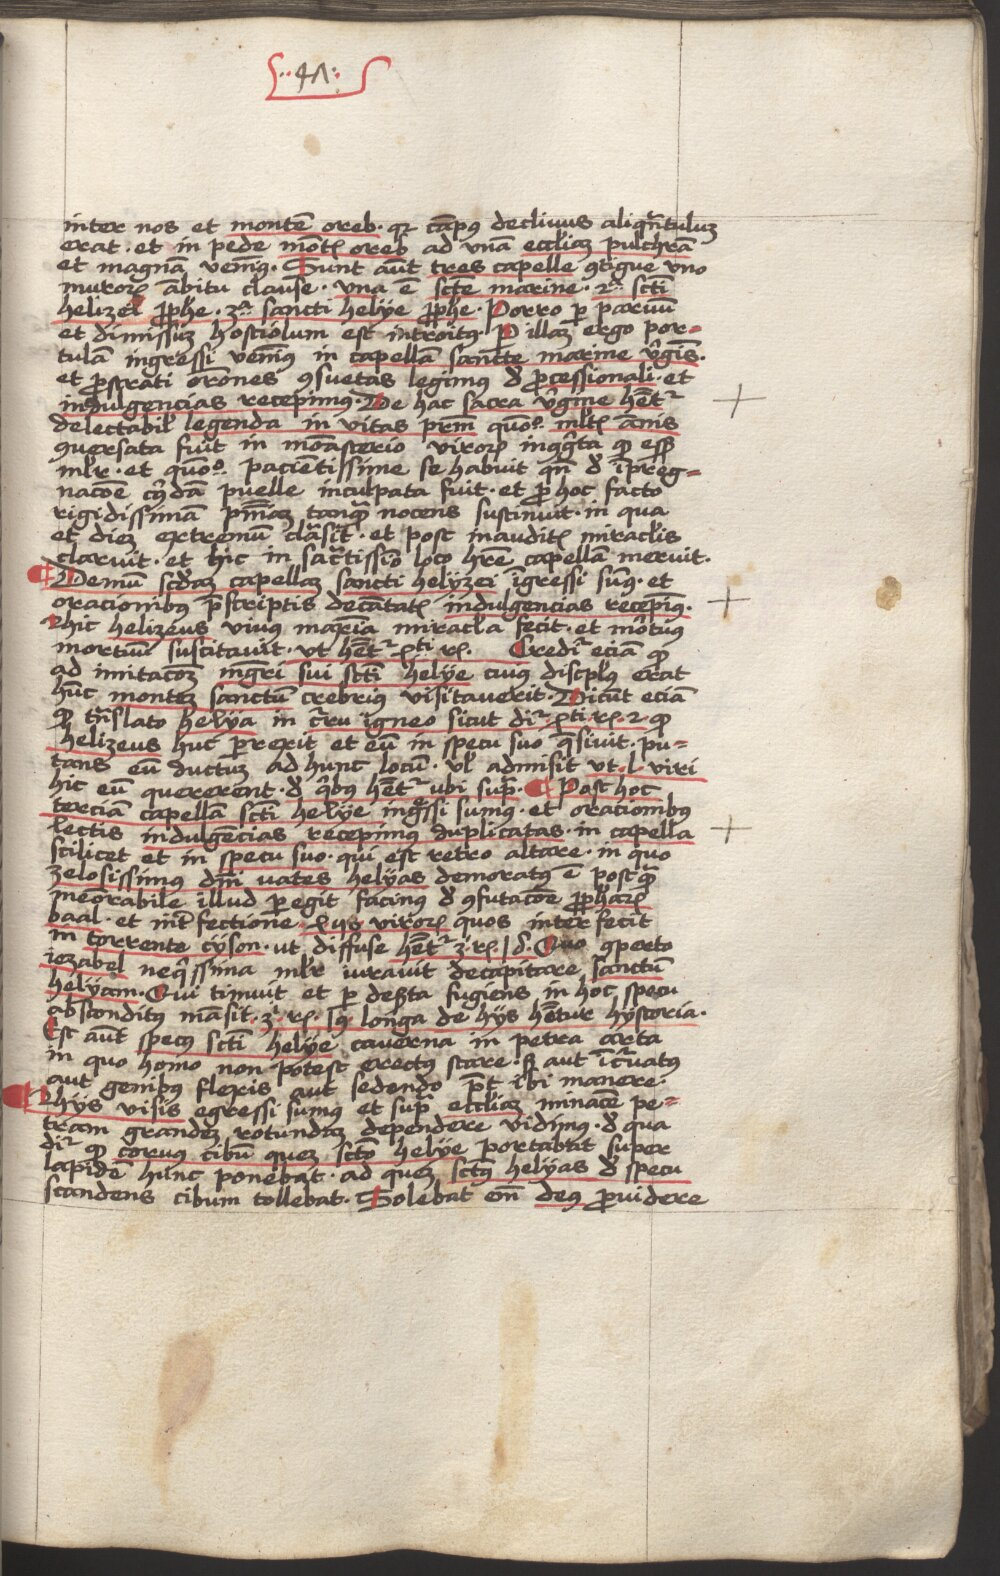 ·41·
inter nos et montē oreb· qr cāpꝯ declivus aliqn̄tulum
erat· et in pede mōtꝭ oreb ad vnā eccliaꝫ pulchrā
et magnā venimꝯ· Sunt aut̄ tres capelle ꝯtigue vno
muroꝝ ābitu clause· vna ē scte marine· 2ᵃ scti
helizei ꝓphe· 3ᵃ sancti helye ꝓphe· Porro ꝑ paruū
et dimissuꝫ hostiolum est introitꝯ· Ꝑ illaꝫ ergo por=
tulā ingressi venimꝯ in capellā sancte marine v̄gīs·
et ꝓstrati orōnes ꝯsuetas legimꝯ d ꝓcessionali· et
indulgencias recepimꝯ· De hac sacra v̄gine hēt̄ʳ
delectabil' legenda in vitas pr̄m quōᵒ· mltꝭ ānis
ꝯuersata fuit in mōasterio viroꝝ
ml'r· et quōᵒ· pacientissime se habuit qn̄ d īpreg=
nacōe cuꝰdā puelle inculpata fuit· et ꝓ hoc facto
rigidissimā pn̄iaꝫ tanqᷓ nocens sustinuit· in qua
et dieꝫ extremū clāsit· et post inauditꝭ miraclis
claruit· et hic in sāctissīo loco hr̄e capellā meruit·
Demū scdaꝫ capellaꝫ sancti helyzei īgressi sumꝯ· et
oracionibꝯ p̄scriptis decātatꝭ indulgencias recepimꝯ·
hic helizeus viuꝯ maxīa miracl'a fecit· et mōtuꝯ
mortuū suscitavit· ut hēt̄ʳ 4ᵗⁱ rꝝ· Credit̄ʳ eciā ꝙ
ad imitacōeꝫ mgr̄i sui scti helye cuiꝯ discplꝯ erat
hūc monteꝫ sanctū crebrius visitauerit· Dicūt eciā
ꝙ tn̄slato helya in c̄ru igneo sicut dr̄ 4ᵗⁱ rꝝ· 2· ꝙ
helizeus huc ꝑrexit et eū in specu suo q̄siuit· pu=
tans eū ductuꝫ ad hunc locū· vl' admisit ut· l· viri
hic eū quererent· d qᵇꝯ hēt̄ʳ ubi supᷓ· Post hoc
terciā capellā scti helye ingr̄ssi sumꝯ· et oracionibꝯ
lectis indulgēcias recepimꝯ duplicatas· in capella
scilicet et in specu suo· qui est retro altare· in quo
zelosissimꝯ dn̄i vates helyas demoratꝯ ē postqᷓ
mēorabile illud ꝑegit facinꝯ d ꝯfutacōe ꝓphaꝝ
baal· et int̄fectione· viroꝝ quos inter fecit
in torrente cyson· ut diffuse hēt̄ʳ 3· rꝝ· 18· Quo ꝯperto
iezabel neqᷓssima ml'r iurauit decapitare sanctū
helyam· Qui timuit et ꝑ deserta fugiens in hoc specu
absconditꝯ māsit· 3ⁱ rꝝ· 19 longa de hijs hētur hystoria·
Est aut̄ specꝯ scti helye caverna in petra arta
in quo homo non potest erectꝯ stare· s̄ aut ic̄uatꝯ
aut genibꝯ flexis aut sedendo pt̄ ibi manere·
hijs visis egressi sumꝯ et supᷓ eccliaꝫ minacē pe=
tram grandeꝫ rotundaꝫ dependere vidimꝯ· d qua
dr̄ ꝙ coruꝯ cibū queꝫ scto helye portabat super
lapidē hunc ponebat· ad queꝫ sctꝯ helyas d specu
scandens cibum tollebat· Solebat eni deꝯ ꝓuidere